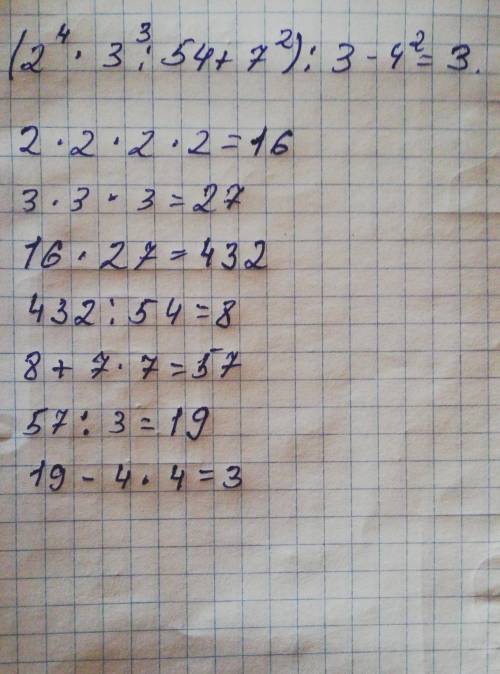 (2⁴ · 3³ : 54 + 7²) : 3 - 4² = 3.
2 · 2 · 2 · 2 = 16
3 · 3 · 3 = 27
16 · 27 = 432
432 : 54 = 8
8 + 7 · 7 = 57
57 : 3 = 19
19 - 4 · 4 = 3